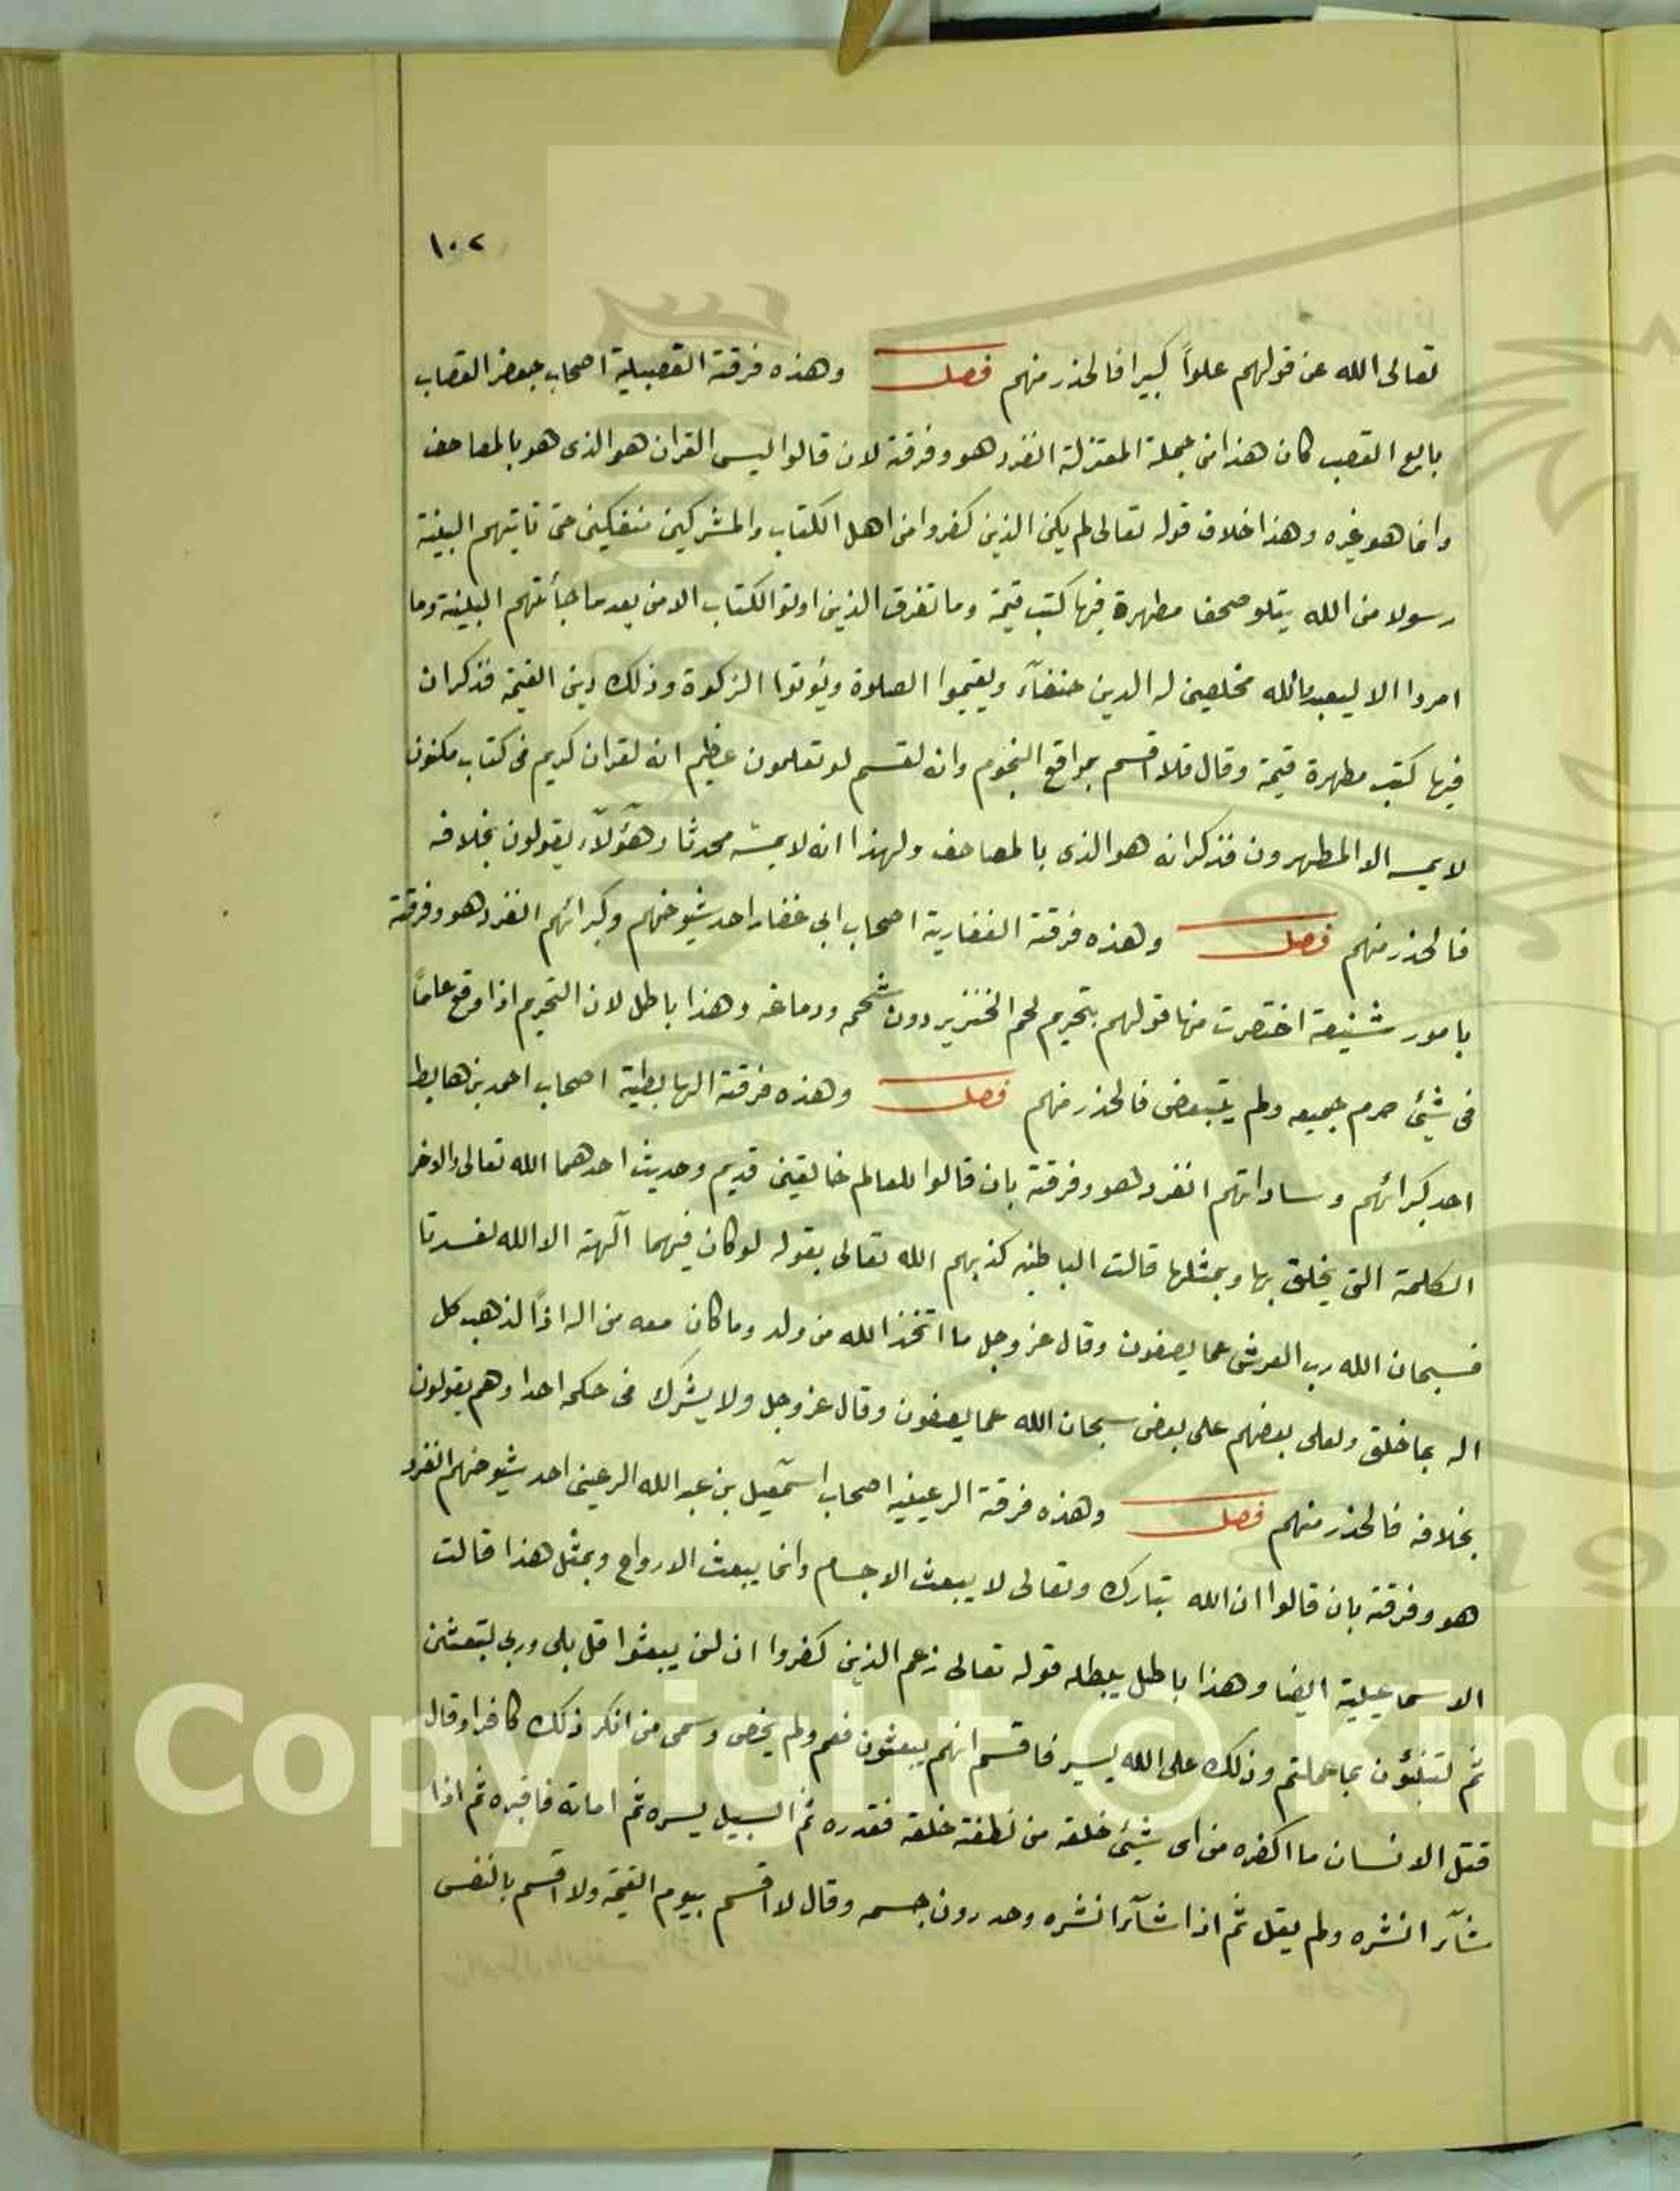 ١٠٢
تعالى الله عن قولهم علواً كبيرا فالحذر منهم فصل وهذه فرقة القصبيلية اصحاب جعفر القصاب
بايع القصب كان هذا من جملة المعتزلة انفرد هو وفرقة لان قالوا ليس القران هو الذى هو بالمصاحف
وانما هو غيره وهذا خلاف قوله تعالى لم يكن الذين كفروا من اهل الكتاب والمشركين منفكين حتى تاتيهم البينة
رسولا من الله يتلو صحفا مطهرة فيها كتب قيمة وما تفرق الذين اوتوا الكتاب الا من بعد ما جائتهم البينة وما
امروا الا ليعبدوا لله مخلصين له الدين حنفآء ويقيموا الصلوة ويؤتوا الزكوة وذلك دين القيمة فذكر ان
فيها كتب مطهرة قيمة وقال فلا اقسم بمواقع النجوم وانه لقسم لو تعلمون عظيم انه لقران كريم فى كتاب مكنون
لا يمسه الا المطهرون فذكر انه هو الذى بالمصاحف ولهذا انه لا يمسه محدثا وهؤلآء يقولون بخلافه
فالحذر منهم فصل وهذه فرقة الغفارية اصحاب ابى غفار احد شيوخهم وكبرائهم انفرد هو وفرقة
بامور شنيعة اختصرت منها قولهم بتحريم لحم الخنزير دون شحمه ودماغه وهذا باطل لان التحريم اذا وقع عاماً
فى شيئ حرم جميعه ولم يتبعض فالحذر منهم فصل وهذه فرقة الهابطية اصحاب احمد بن هابط
احد كبرائهم وساداتهم انفرد هو وفرقة بان قالوا للعالم خالقين قديم وحديث احدهما الله تعالى والاخر
الكلمة التى يخلق بها وبمثلها قالت الباطنه كذبهم الله تعالى بقوله لو كان فيهما آلهة الا الله لفسدتا
فسبحان الله رب العرش عما يصفون وقال عز وجل ما اتخذ الله من ولد وما كان معه من اله اذاً لذهب كل
اله بما خلق ولعلى بعضهم على بعض سبحان الله عما يصفون وقال عز وجل ولا يشرك فى حكمه احدا وهم يقولون
بخلافه فالحذر منهم فصل وهذه فرقة الرعينيه اصحاب اسمعيل بن عبد الله الرعينى احد شيوخهم انفرد
هو وفرقة بان قالوا ان الله تبارك وتعالى لا يبعث الاجسام وانما يبعث الارواح وبمثل هذا قالت
الاسماعيلية ايضا وهذا باطل يبطله قوله تعالى زعم الذين كفروا ان لن يبعثوا قل بلى وربى لتبعثن
ثم لتنبؤن بما عملتم وذلك على الله يسير فاقسم انهم يبعثون فعم ولم يخص وسمى من انكر ذلك كافرا وقال
قتل الانسان ما اكفره من اى شيئ خلقه من نطفة خلقه فقدره ثم السبيل يسره ثم اماته فاقبره ثم اذا
شآء انشره ولم يقل ثم اذا شآء انشره وحد دون جسمه وقال لا اقسم بيوم القيمة ولا اقسم بالنفس
Copyright © King